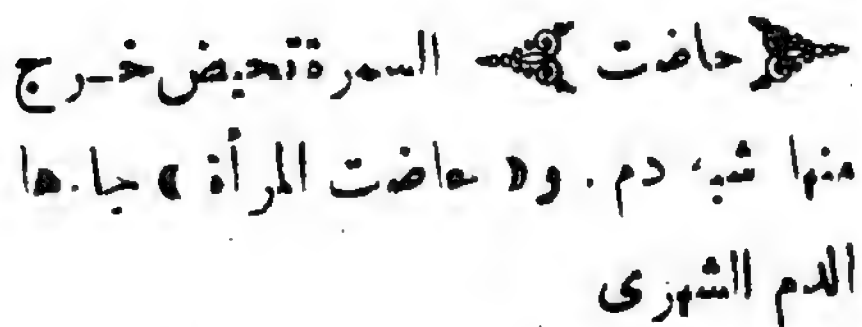 ﴿ حاضت ﴾ السمرة تحيض خرج
منها شبه دم . و« حاضت المرأة » جاءها
الدم الشهرى